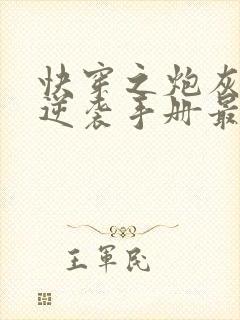 快穿之炮灰
逆袭手册最
王軍民